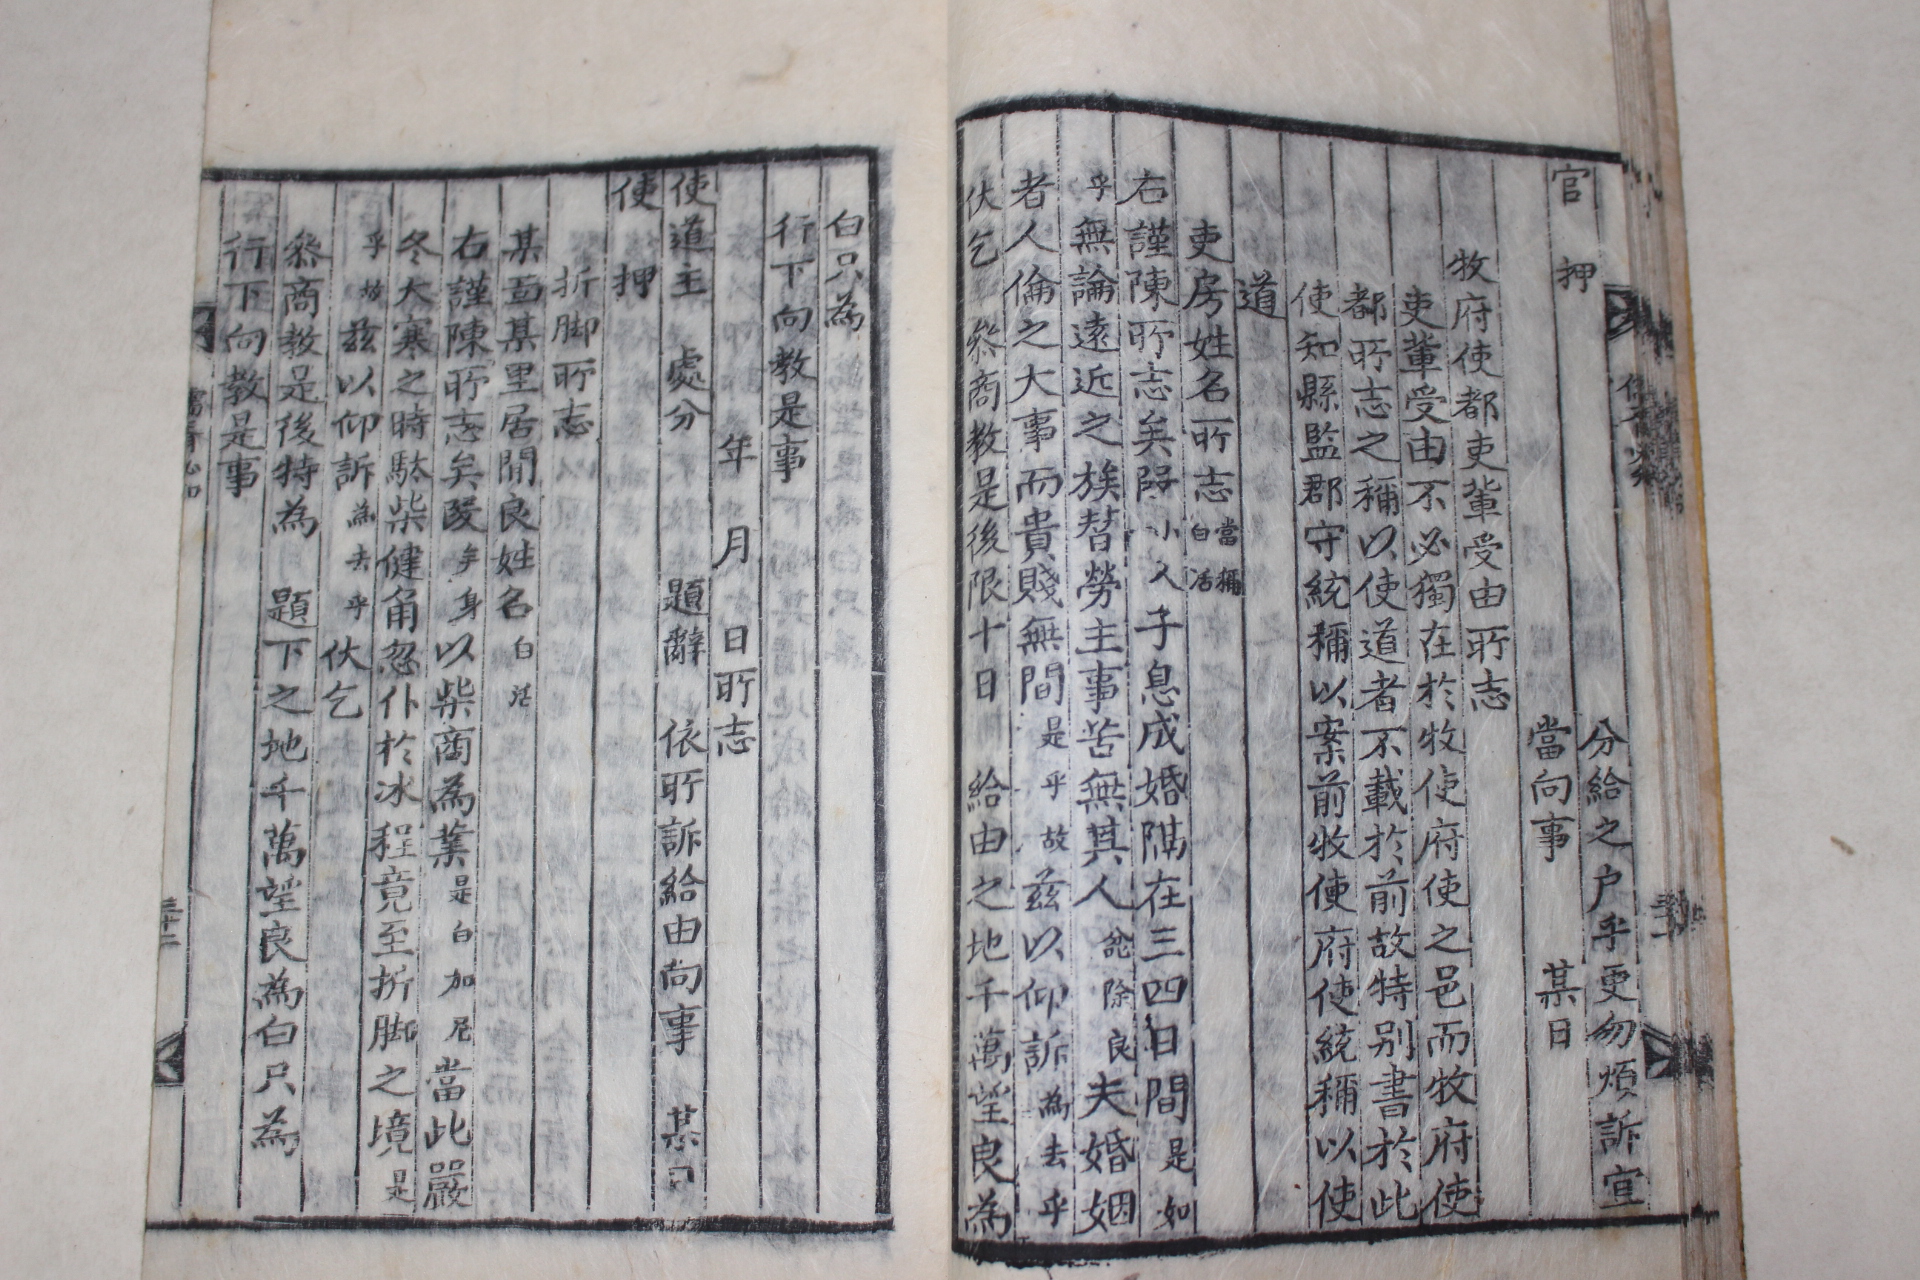 分給之户乎更勿煩訴宣
當向事 某日
官押
牧府使都吏輩受由所志
吏輩受由不必獨在於牧使府使之邑而牧府使
都所志之稱以使道者不載於前故特別書於此
使知縣監郡守統稱以案前牧使府使統稱以使
道
吏房姓名所志 當稱白活
右謹陳所志矣段小人子息成婚隔在三四日間是如
乎無論遠近之族替勞主事苦無其人除良夫婚姻
者人倫之大事而貴賤無間是乎故茲以仰訴為去乎
伏乞 叅商教是後限十日 給由之地千萬望良為
白只為
行下向教是事
年 月 日所志
使道主 處分 題辭 依所訴給由向事 某日
使 押
折脚所志
某面某里居閒良姓名白活
右謹陳所志矣段矣身以柴商為業是白加尼當此嚴
冬大寒之時駄柴健甬忽仆於冰程竟至折脚之境是
乎故茲以仰訴為去乎伏乞
叅商教是後特為 題下之地千萬望良為白只為
行下向教是事
三十二